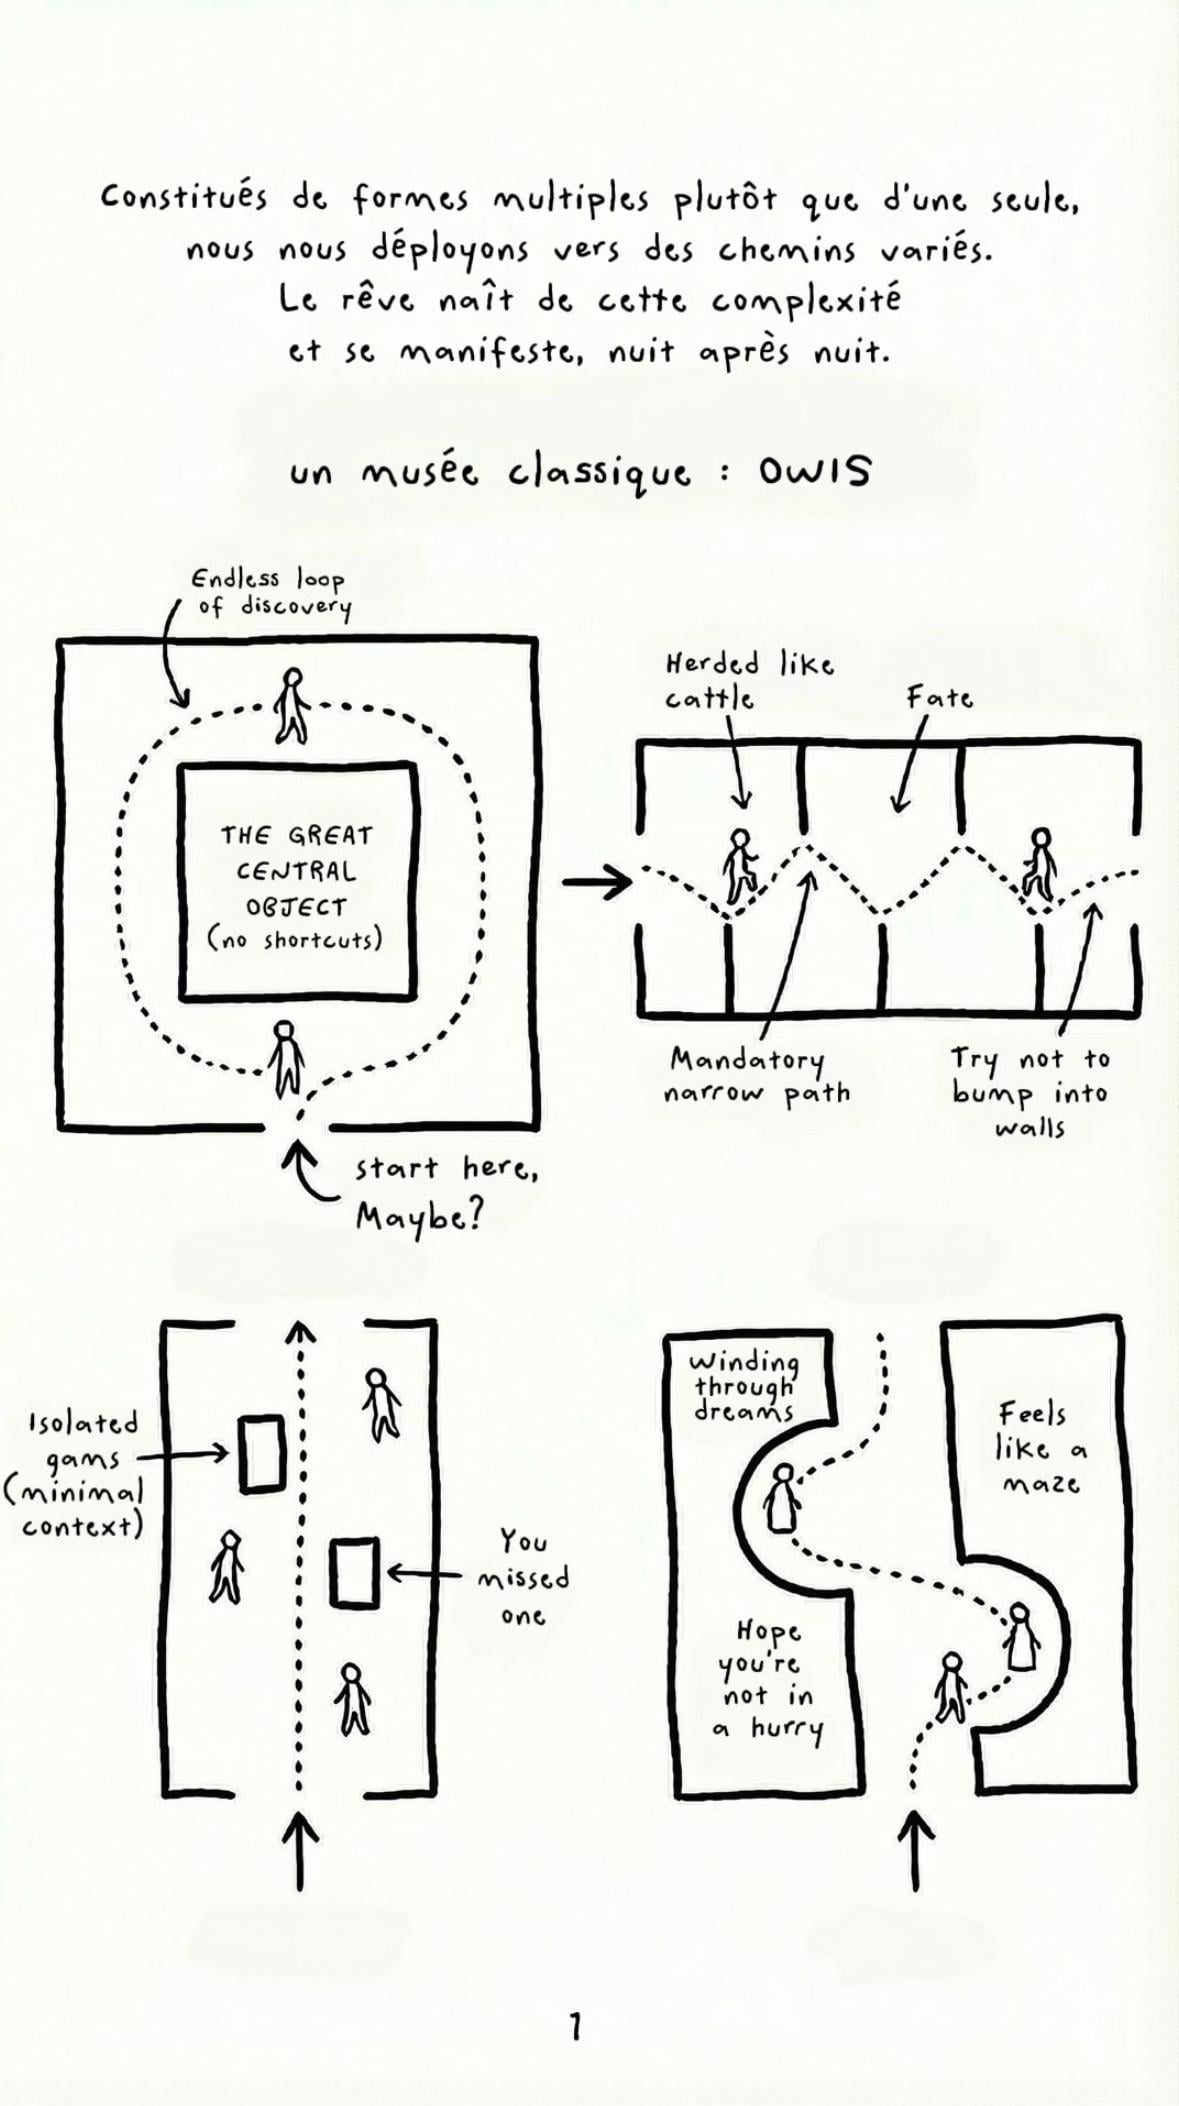 Constitués de formes multiples plutôt que d'une seule,
nous nous déployons vers des chemins variés.
Le rêve naît de cette complexité
et se manifeste, nuit après nuit.
un musée classique : OWIS
Endless loop
of discovery
THE GREAT
CENTRAL
OBJECT
(no shortcuts)
start here,
Maybe?
Herded like
cattle
Fate
Mandatory
narrow path
Try not to
bump into
walls
Isolated
gams
(minimal
context)
You
missed
one
Winding
through
dreams
Feels
like a
maze
Hope
you're
not in
a hurry
1